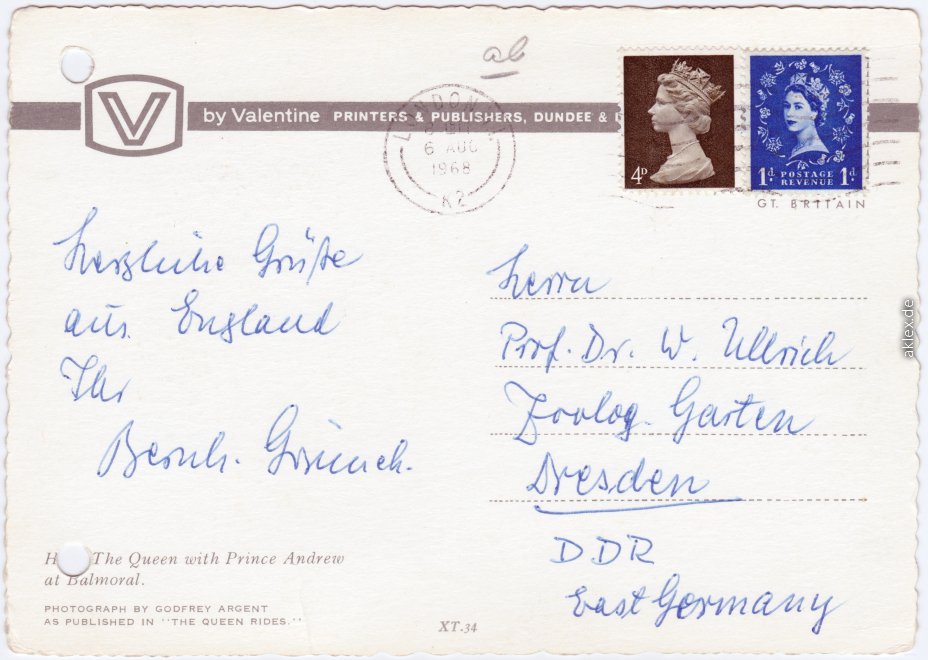 ab
by Valentine PRINTERS & PUBLISHERS, DUNDEE &
LONDON
6 AUG
1968
K2
4D
1d. POSTAGE REVENUE 1d.
GT. BRITAIN
Herzliche Grüße
aus England
Ihr
Bernh.
Herrn
Prof. Dr. W. Ullrich
Zoolog. Garten
Dresden
DDR
East Germany
The Queen with Prince Andrew
at Balmoral.
PHOTOGRAPH BY GODFREY ARGENT
AS PUBLISHED IN "THE QUEEN RIDES."
XT.34
aklex.de